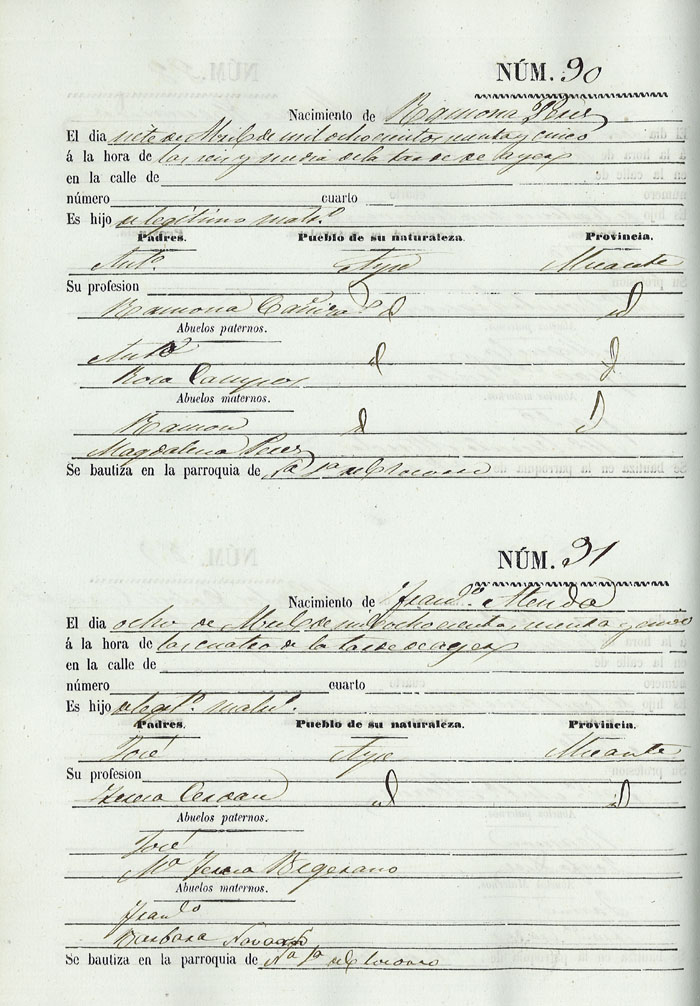 NÚM. 90
Nacimiento de Ramona Perez
El dia siete de Abril de mil ochocientos senta y cinco
á la hora de las seis y media de la tarde de layer
en la calle de
número cuarto
Es hijo de legítimo matr.º
Padres. Pueblo de su naturaleza. Provincia.
Ant.º Aspe Alicante
Su profesion
Ramona id id
Abuelos paternos.
Ant.º id id
Rosa Campos
Abuelos maternos.
Ramon id id
Magdalena Perez
Se bautiza en la parroquia de N.ª S.ª del Socorro
NÚM. 91
Nacimiento de Fran.co
El dia ocho de Abril de mil ochocientos senta y cinco
á la hora de las cuatro de la tarde de ayer
en la calle de
número cuarto
Es hijo de legit.º matr.º
Padres. Pueblo de su naturaleza. Provincia.
José Aspe Alicante
Su profesion
Teresa Cerdan id id
Abuelos paternos.
José
M.ª Teresa Begerano
Abuelos maternos.
Fran.co
Barbara Navarro
Se bautiza en la parroquia de N.ª S.ª del Socorro